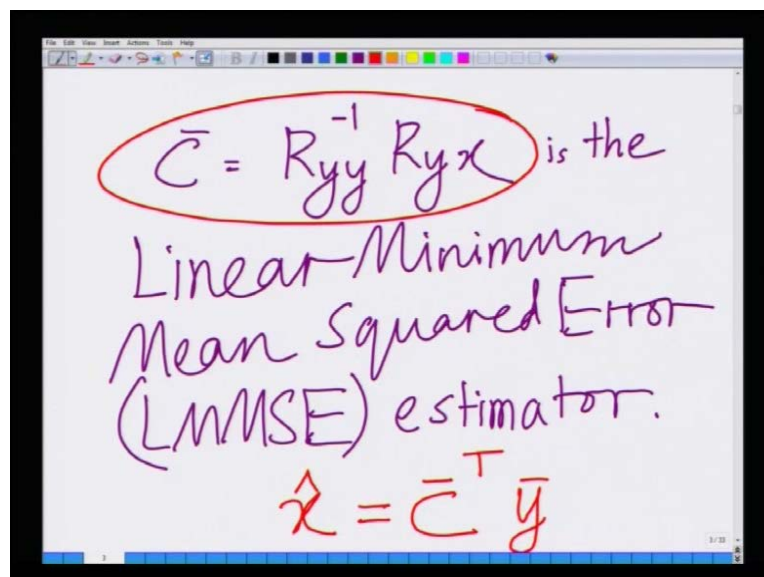 File Edit View Insert Actions Tools Help
C̄ = Ryy⁻¹ Ryx is the
Linear Minimum
Mean Squared Error
(LMMSE) estimator.
x̂ = c̄ᵀ ȳ
3